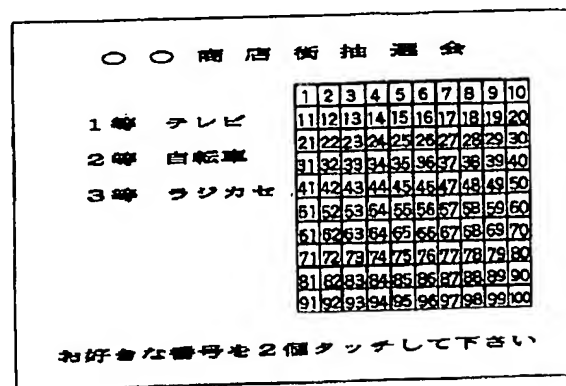 ○○商店街抽選会
1等 テレビ
2等 自転車
3等 ラジカセ
1 2 3 4 5 6 7 8 9 10
11 12 13 14 15 16 17 18 19 20
21 22 23 24 25 26 27 28 29 30
31 32 33 34 35 36 37 38 39 40
41 42 43 44 45 46 47 48 49 50
51 52 53 54 55 56 57 58 59 60
61 62 63 64 65 66 67 68 69 70
71 72 73 74 75 76 77 78 79 80
81 82 83 84 85 86 87 88 89 90
91 92 93 94 95 96 97 98 99 100
お好きな番号を2個タッチして下さい